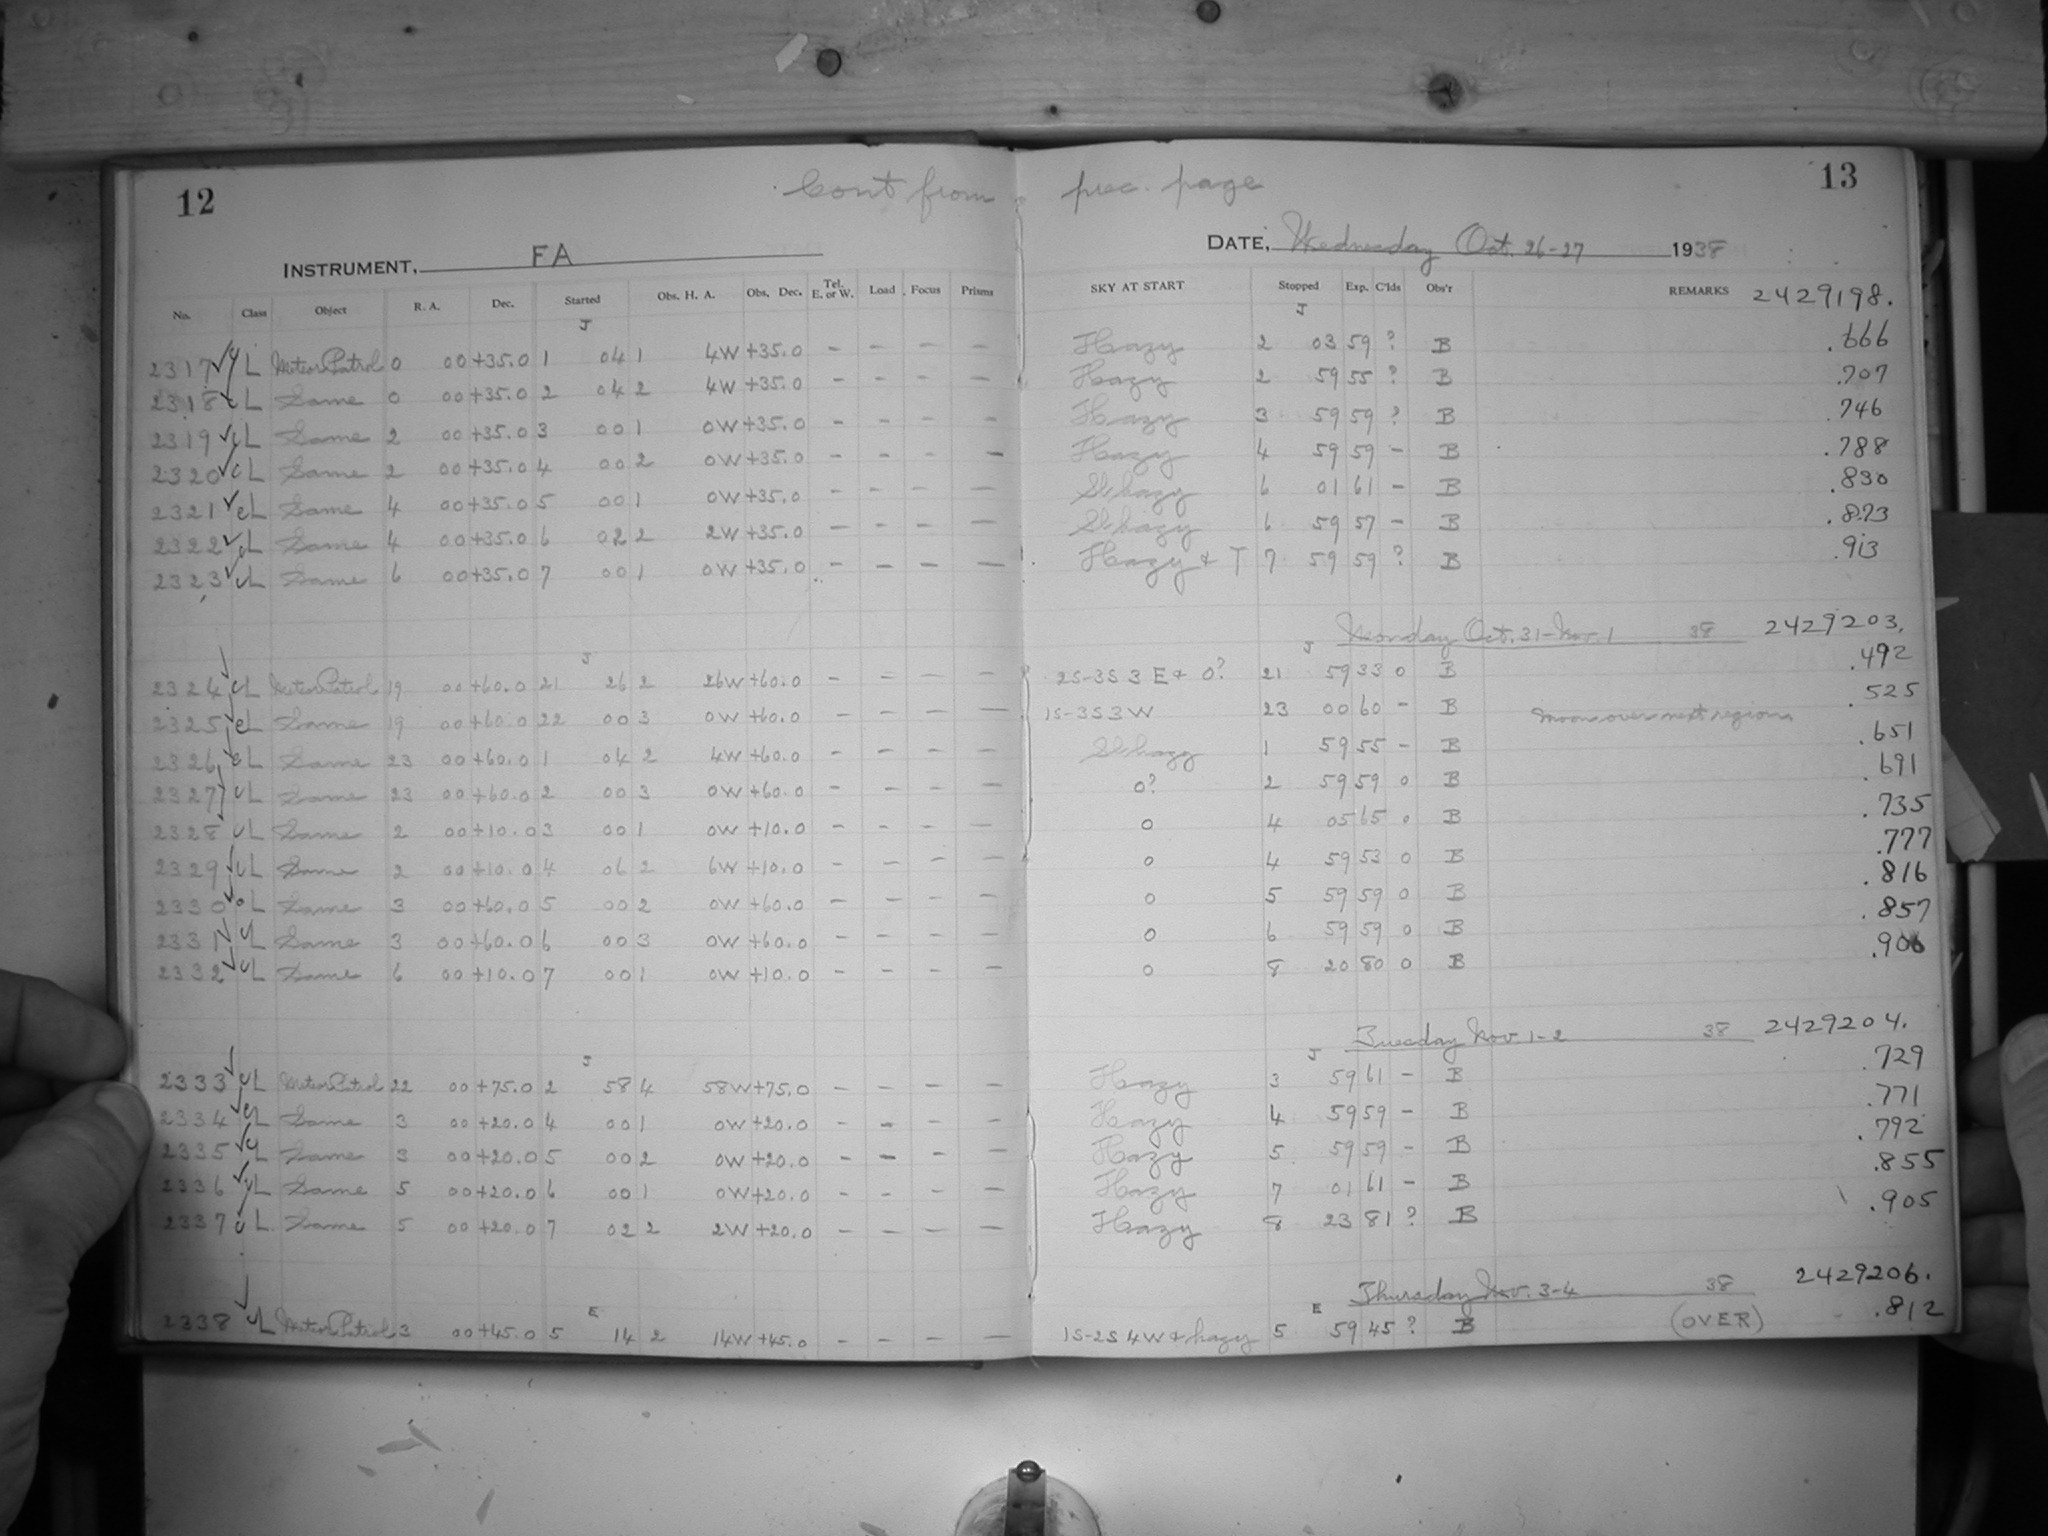 12
Cont from prec. page
13
INSTRUMENT, FA
DATE, Wednesday Oct. 26-27 1938
No. Class Object R. A. Dec. Started Obs. H. A. Obs. Dec. Tel. E. or W. Load Focus Prisms SKY AT START Stopped Exp. C'lds Obs'r REMARKS 2429198.
J J
2317 L Meteor Patrol 0 00 +35.0 1 04 1 4W +35.0 - - - - Hazy 2 03 59 ? B .666
2318 L Same 0 00 +35.0 2 04 2 4W +35.0 - - - - Hazy 2 59 55 ? B .707
2319 cL Same 2 00 +35.0 3 00 1 0W +35.0 - - - - Hazy 3 59 59 ? B .746
2320 cL Same 2 00 +35.0 4 00 2 0W +35.0 - - - - Hazy 4 59 59 - B .788
2321 cL Same 4 00 +35.0 5 00 1 0W +35.0 - - - - Sl hazy 6 01 61 - B .830
2322 cL Same 4 00 +35.0 6 02 2 2W +35.0 - - - - Sl hazy 6 59 57 - B .873
2323 cL Same 6 00 +35.0 7 00 1 0W +35.0 - - - - Hazy + T 7 59 59 ? B .913
Monday Oct. 31-Nov. 1 38 2429203.
J J
2324 cL Meteor Patrol 19 00 +60.0 21 26 2 26W +60.0 - - - - 2S-3S 3 E + 0? 21 59 33 0 B .492
2325 cL Same 19 00 +60.0 22 00 3 0W +60.0 - - - - 1S-3S 3 W 23 00 60 - B Moon over next regions .525
2326 cL Same 23 00 +60.0 1 04 2 4W +60.0 - - - - Sl hazy 1 59 55 - B .651
2327 cL Same 23 00 +60.0 2 00 3 0W +60.0 - - - - 0? 2 59 59 0 B .691
2328 cL Same 2 00 +10.0 3 00 1 0W +10.0 - - - - 0 4 05 65 0 B .735
2329 cL Same 2 00 +10.0 4 06 2 6W +10.0 - - - - 0 4 59 53 0 B .777
2330 cL Same 3 00 +60.0 5 00 2 0W +60.0 - - - - 0 5 59 59 0 B .816
2331 cL Same 3 00 +60.0 6 00 3 0W +60.0 - - - - 0 6 59 59 0 B .857
2332 cL Same 6 00 +10.0 7 00 1 0W +10.0 - - - - 0 8 20 80 0 B .906
Tuesday Nov. 1-2 38 2429204.
J J
2333 cL Meteor Patrol 22 00 +75.0 2 58 4 58W +75.0 - - - - Hazy 3 59 61 - B .729
2334 cL Same 3 00 +20.0 4 00 1 0W +20.0 - - - - Hazy 4 59 59 - B .771
2335 cL Same 3 00 +20.0 5 00 2 0W +20.0 - - - - Hazy 5 59 59 - B .792
2336 cL Same 5 00 +20.0 6 00 1 0W +20.0 - - - - Hazy 7 01 61 - B .855
2337 cL Same 5 00 +20.0 7 02 2 2W +20.0 - - - - Hazy 8 23 81 ? B .905
Thursday Nov. 3-4 38 2429206.
E E
2338 cL Meteor Patrol 3 00 +45.0 5 14 2 14W +45.0 - - - - 1S-2S 4W + hazy 5 59 45 ? B (OVER) .812